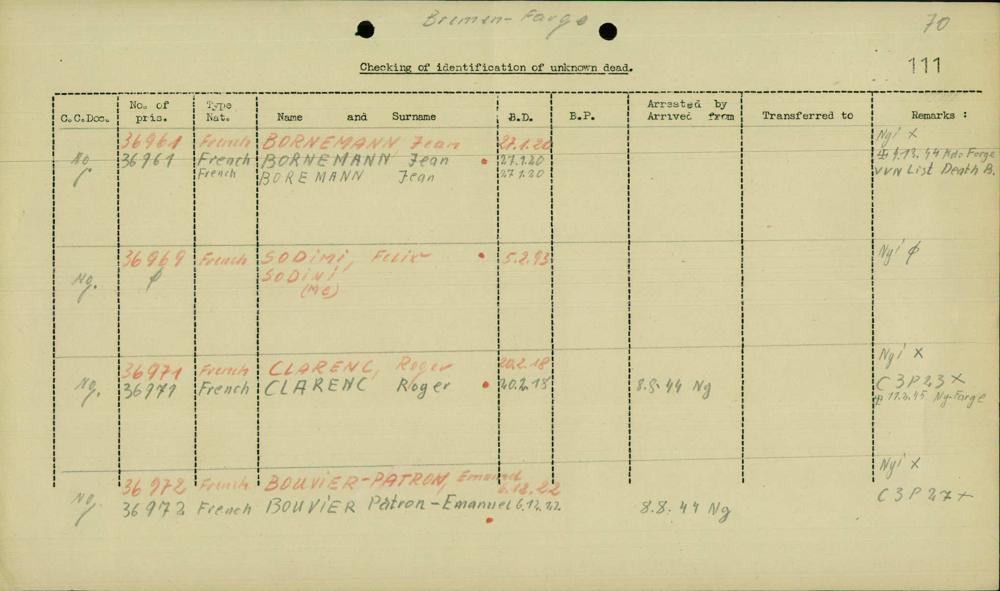 Bremen-Farge
70
111
Checking of identification of unknown dead.
C.C.Doc. No. of pris. Type Nat. Name and Surname B.D. B.P. Arrested by Arrived from Transferred to Remarks :
36961 French BORNEMANN Jean 27.1.20 Ngi x
No 36961 French BORNEMANN Jean 27.1.20 44 Kdo Farge
French BOREMANN Jean 27.1.20 VVN List Death B.
36969 French SODIMI, Felix 5.2.93 Ngi ø
Ng. ø SODINI
(Me)
36971 French CLARENC, Roger 20.2.18 Ngi x
Ng. 36971 French CLARENC Roger 20.2.18 8.8.44 Ng C3P23x
45 Ng-Farge
36972 French BOUVIER-PATRON, Emanuel 6.12.22 Ngi x
Ng. 36972 French BOUVIER Patron-Emanuel 6.12.22. 8.8.44 Ng C3P27+